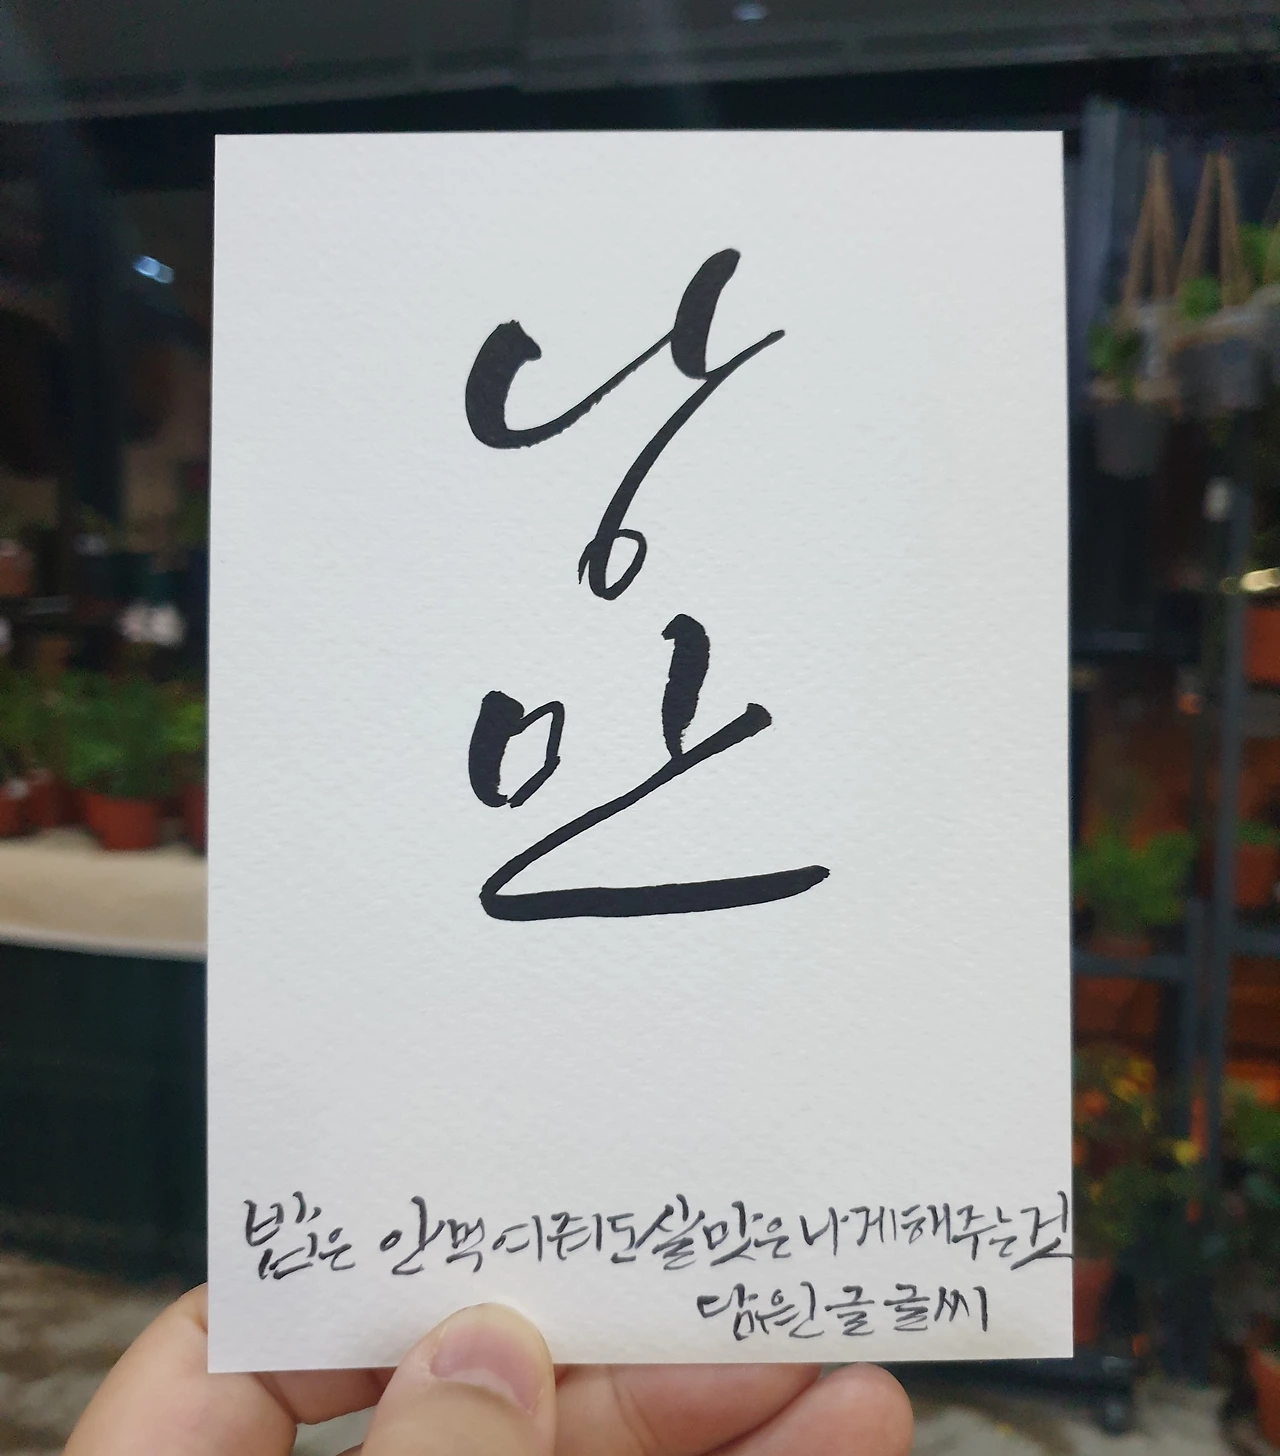 낭
만
밥은 안먹여줘도살맛은나게해주는것
글 글씨